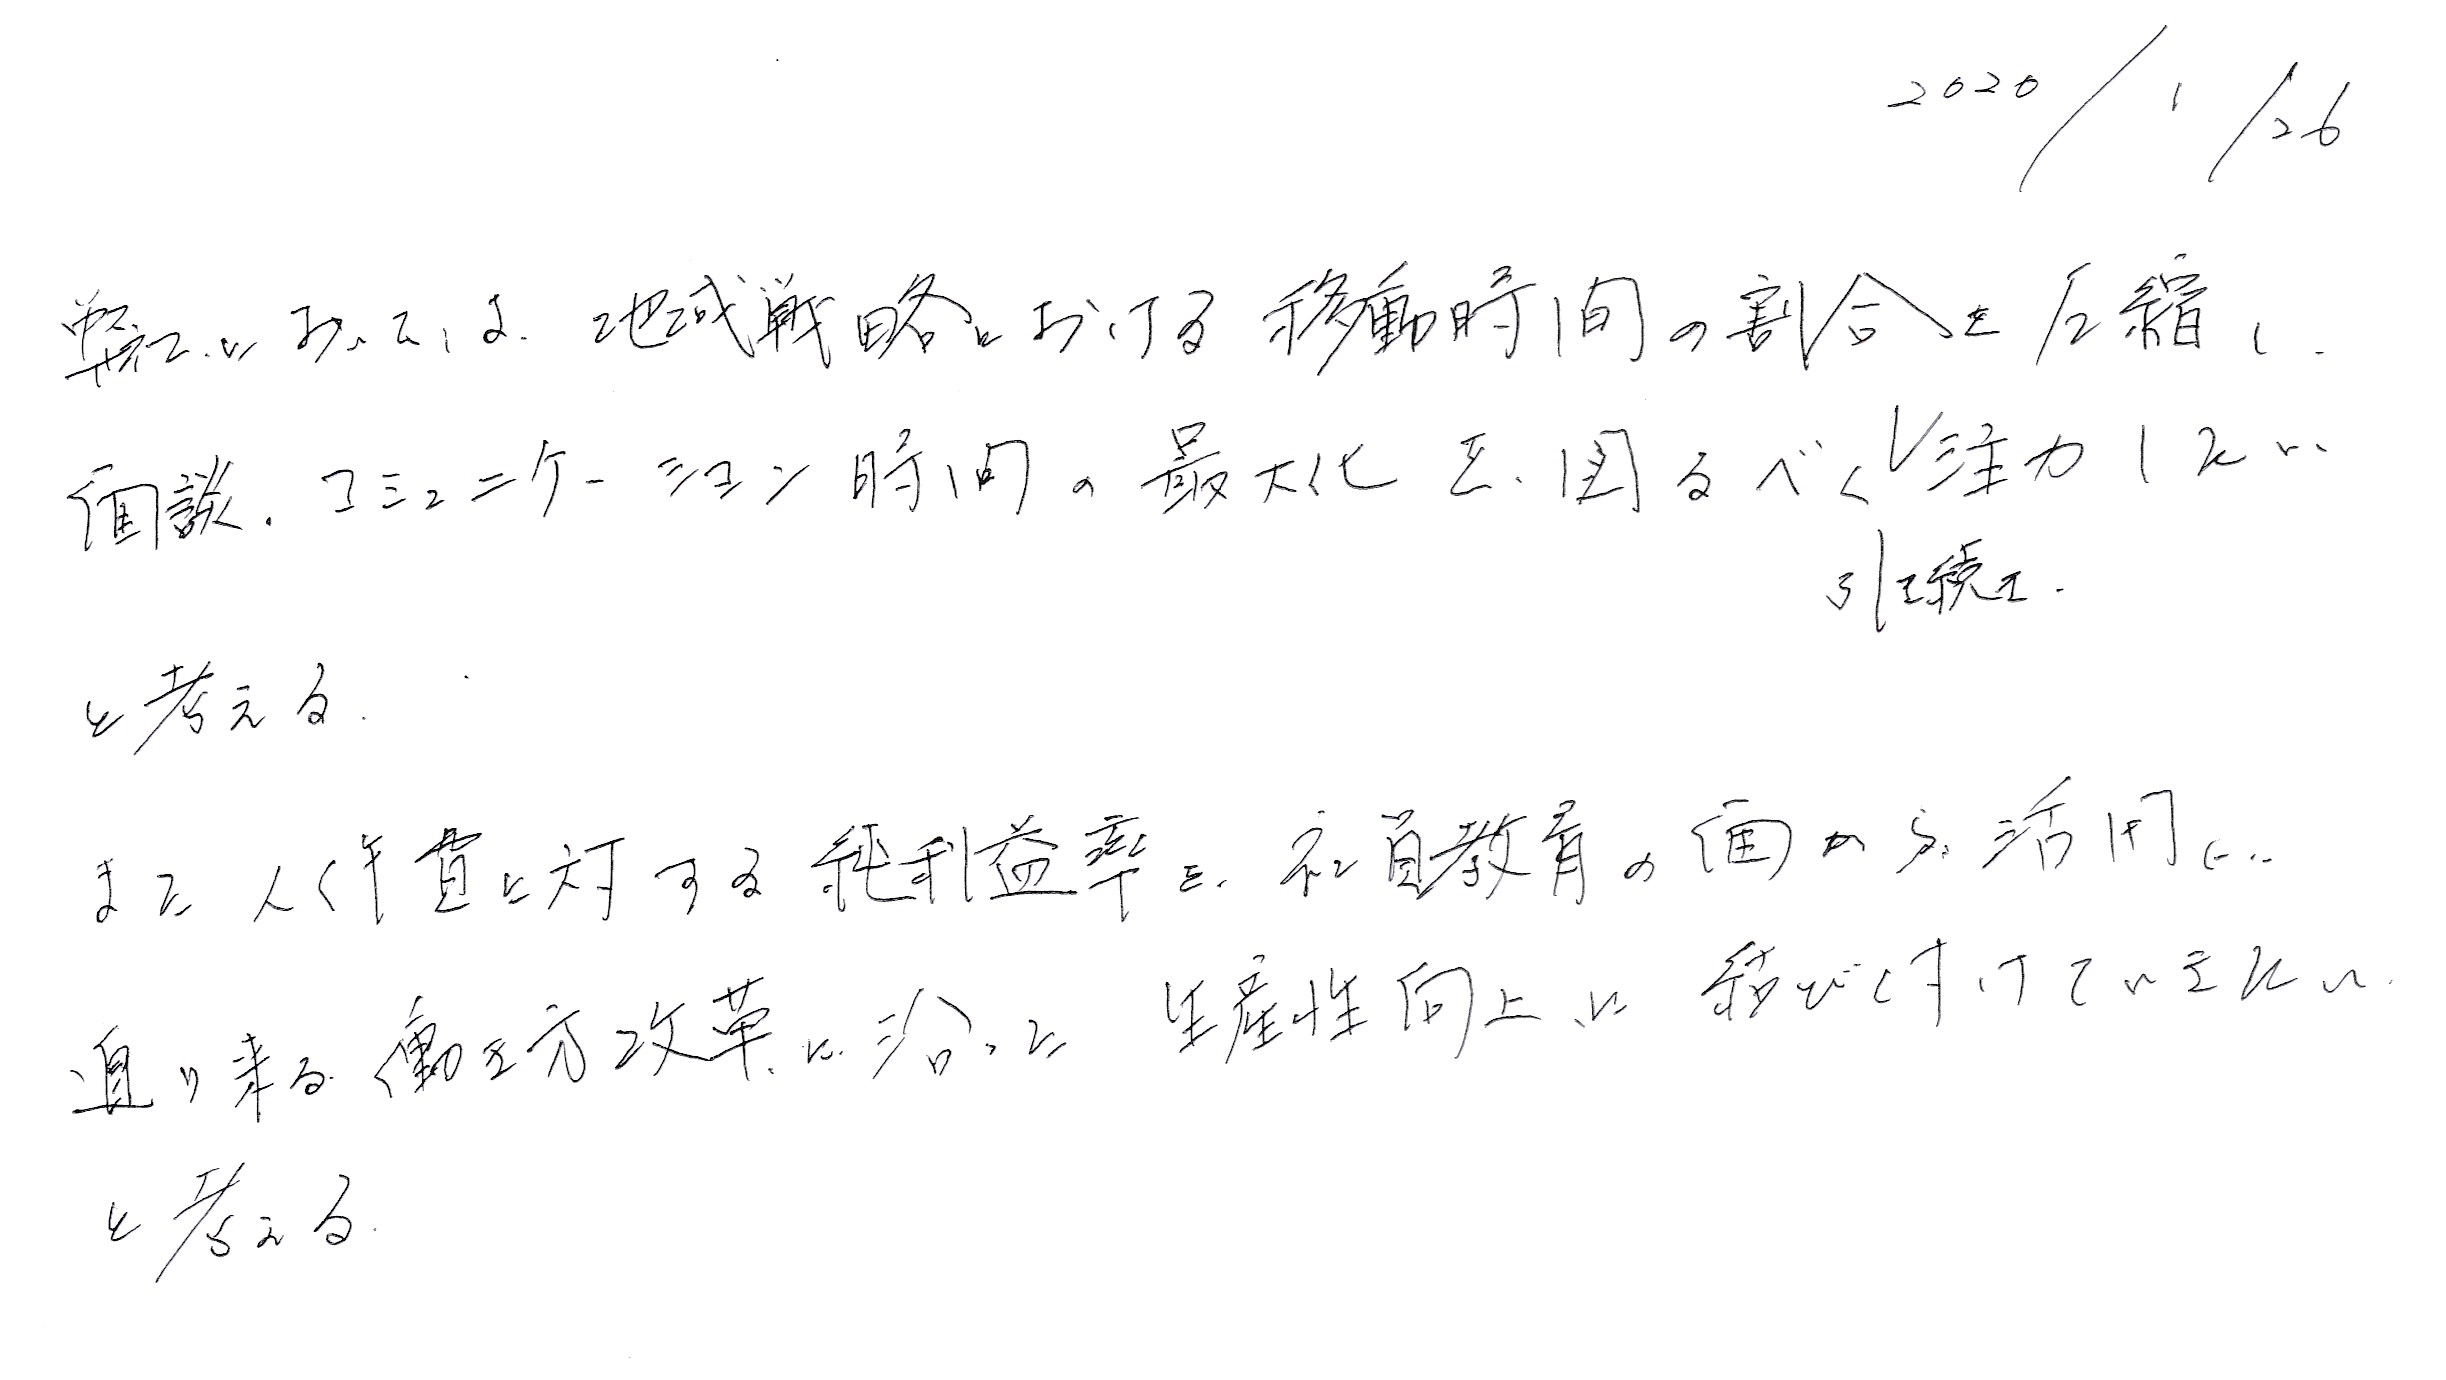 2020/1/26
弊社においては、地域戦略における移動時間の割合を圧縮し、
面談、コミュニケーション時間の最大化を、図るべく注力したい
引き続き、
と考える。
また人件費に対する純利益率を、社員教育の面から活用し、
迫り来る働き方改革に沿った生産性向上に結び付けていきたい
と考える。